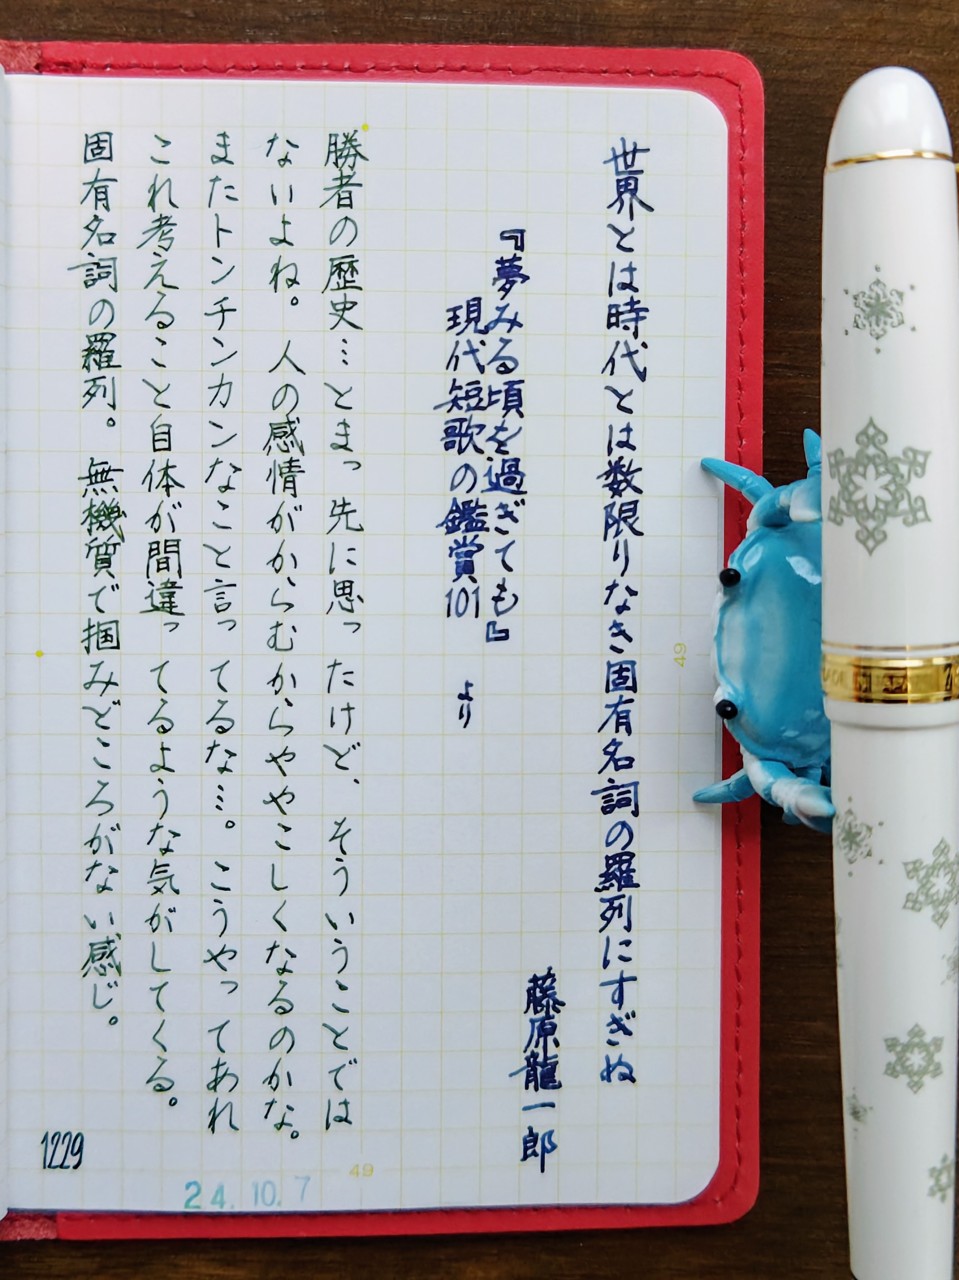 世界とは時代とは数限りなき固有名詞の羅列にすぎぬ
藤原龍一郎
『夢みる頃を過ぎても』
現代短歌の鑑賞101 より
勝者の歴史…とまっ先に思ったけど、そういうことでは
ないよね。人の感情がからむからややこしくなるのかな。
またトンチンカンなこと言ってるな…。こうやってあれ
これ考えること自体が間違ってるような気がしてくる。
固有名詞の羅列。無機質で掴みどころがない感じ。
1229
24.10.7
49
49